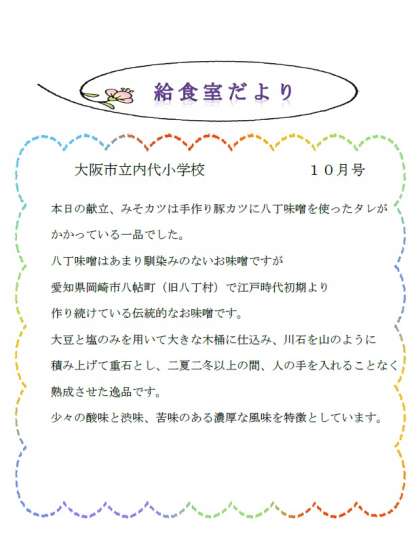 給食室だより
大阪市立内代小学校　１０月号
本日の献立、みそカツは手作り豚カツに八丁味噌を使ったタレが
かかっている一品でした。
八丁味噌はあまり馴染みのないお味噌ですが
愛知県岡崎市八帖町（旧八丁村）で江戸時代初期より
作り続けている伝統的なお味噌です。
大豆と塩のみを用いて大きな木桶に仕込み、川石を山のように
積み上げて重石とし、二夏二冬以上の間、人の手を入れることなく
熟成させた逸品です。
少々の酸味と渋味、苦味のある濃厚な風味を特徴としています。